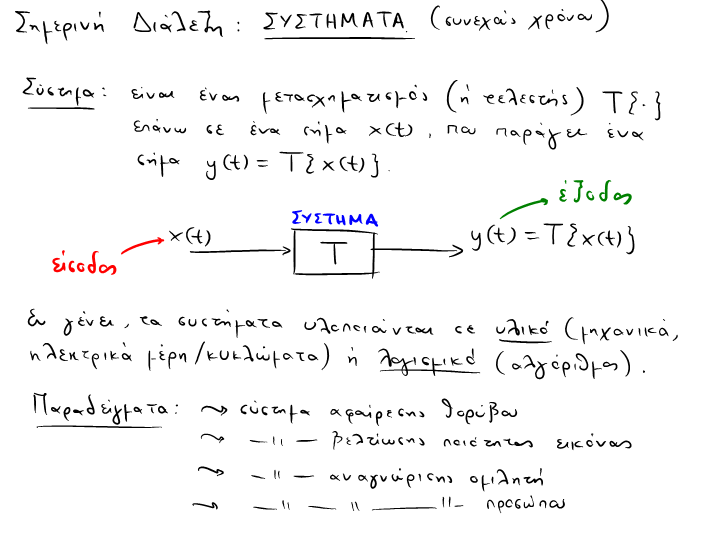 Σημερινή Διάλεξη: ΣΥΣΤΗΜΑΤΑ (συνεχούς χρόνου)
Σύστημα: είναι ένας μετασχηματισμός (ή τελεστής) T{·}
επάνω σε ένα σήμα x(t), που παράγει ένα
σήμα y(t) = T{x(t)}.
έξοδος
ΣΥΣΤΗΜΑ
x(t) T y(t) = T{x(t)}
είσοδος
Εν γένει, τα συστήματα υλοποιούνται σε υλικό (μηχανικά,
ηλεκτρικά μέρη/κυκλώματα) ή λογισμικό (αλγόριθμος).
Παραδείγματα: ⤳ σύστημα αφαίρεσης θορύβου
⤳ —〃— βελτίωσης ποιότητας εικόνας
⤳ —〃— αναγνώρισης ομιλητή
⤳ —〃— 〃 —〃— προσώπου